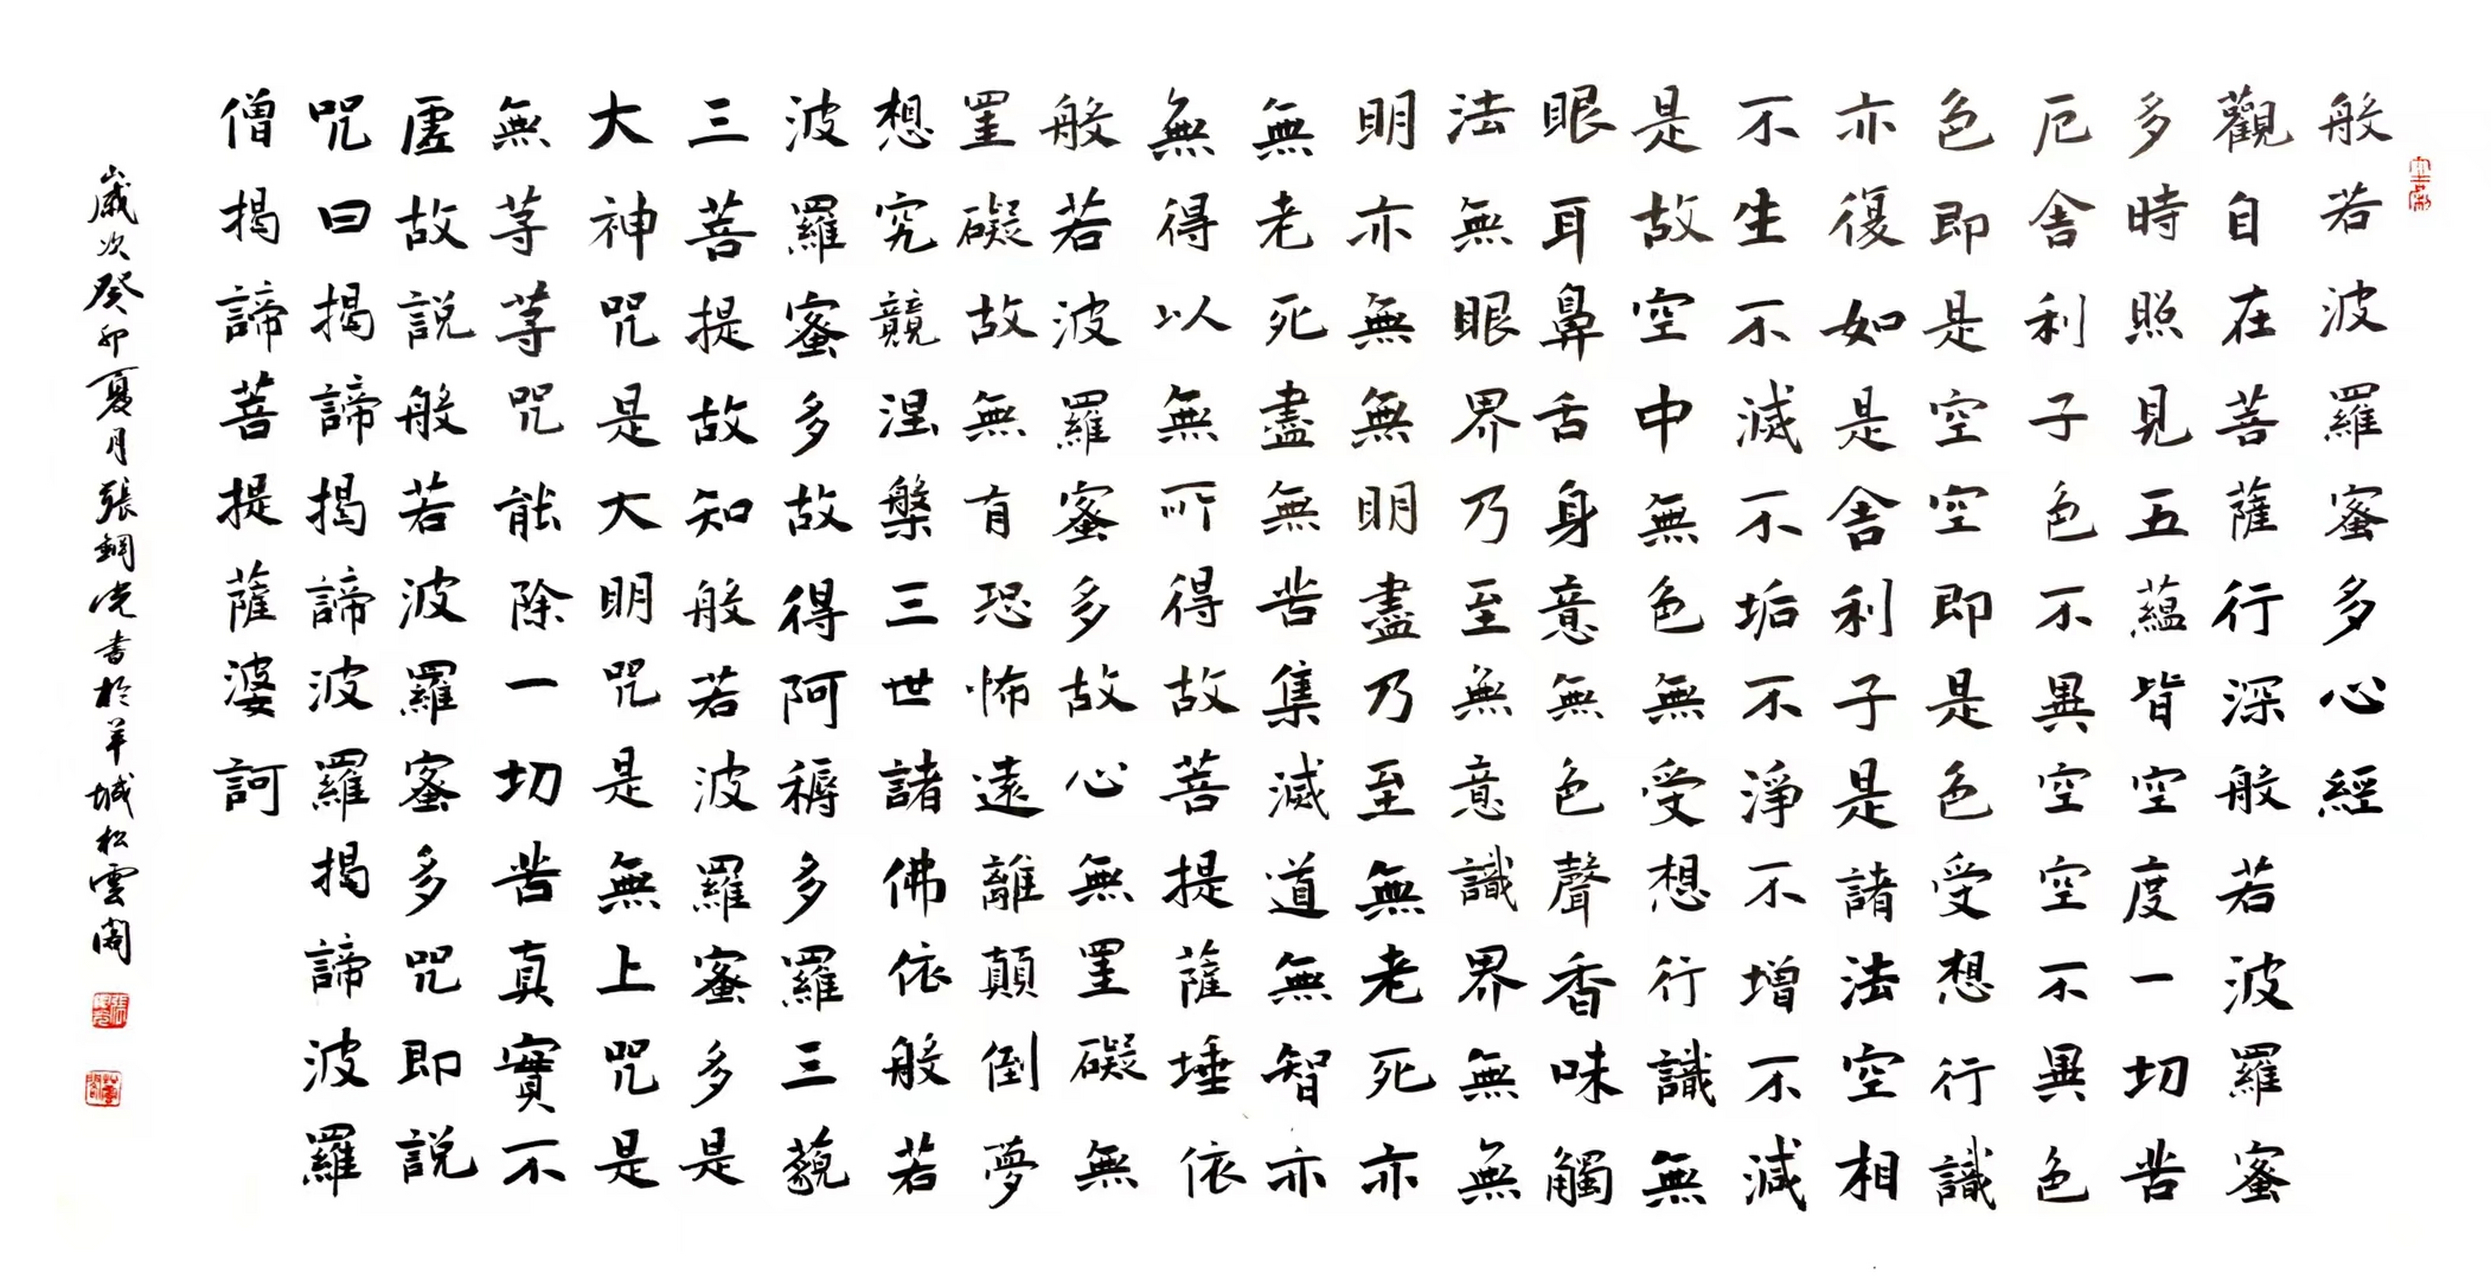 般若波羅蜜多心經
觀自在菩薩行深般若波羅蜜
多時照見五蘊皆空度一切苦
厄舍利子色不異空空不異色
色即是空空即是色受想行識
亦復如是舍利子是諸法空相
不生不滅不垢不淨不增不減
是故空中無色無受想行識無
眼耳鼻舌身意無色聲香味觸
法無眼界乃至無意識界無無
明亦無無明盡乃至無老死亦
無老死盡無苦集滅道無智亦
無得以無所得故菩提薩埵依
般若波羅蜜多故心無罣礙無
罣礙故無有恐怖遠離顛倒夢
想究競涅槃三世諸佛依般若
波羅蜜多故得阿耨多羅三藐
三菩提故知般若波羅蜜多是
大神咒是大明咒是無上咒是
無等等咒能除一切苦真實不
虛故說般若波羅蜜多咒即說
咒曰揭諦揭諦波羅揭諦波羅
僧揭諦菩提薩婆訶
歲次癸卯夏月張鋼光書於羊城松雲閣